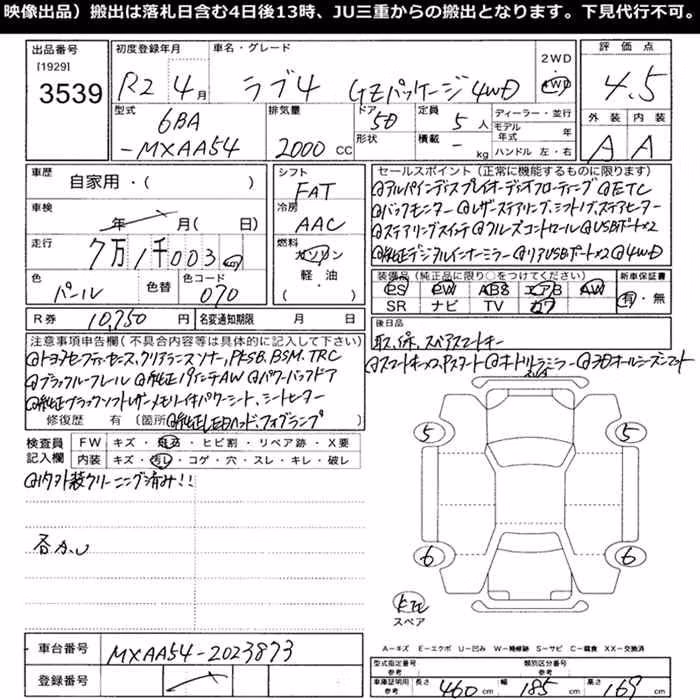 映像出品）搬出は落札日含む4日後13時、JU三重からの搬出となります。下見代行不可。
出品番号 初度登録年月 車名・グレード 2WD 評価点
[1929]
3539 R2 4月 ラブ4 GZパッケージ4WD 4WD 4.5
型式 排気量 ドア 定員 ディーラー・並行 外装 内装
6BA 5D 5人 モデル年式 年
-MXAA54 2000 CC 形状 積載 - kg ハンドル 左・右 A A
車歴 シフト セールスポイント（正常に機能するものに限ります）
自家用・( ) FAT @アルパインディスプレイオーディオフローティング @ETC
車検 冷房 @バックモニター @レザーステアリング、シフトノブ、ステアヒーター
年 月( 日) AAC @ステアリングスイッチ @クルーズコントロール @USBポート×2
走行 燃料 @純正デジタルインナーミラー @リアUSBポート×2 @4WD
7万1千003 km ガソリン
色 色替 色コード 軽・油 装備品（純正品に限り○をつけてください） 新車保証書
パール 070 ( ) PS PW ABS エアB AW 有・無
SR ナビ TV カワ
R券 10,750 円 名変通知期限 月 日 後日品
注意事項申告欄(不具合内容等は具体的に記入して下さい) 取、保、スペアスマートキー
@トヨタセーフティーセンス、クリアランスソナー、PKSB、BSM、TRC @スマートキー×2、Pスタート @オートリトラミラー @3Dオールシーズンマット
@ブラックルーフレール @純正18インチAW @パワーバックドア
@純正ブラックソフトレザーメモリー付パワーシート、シートヒーター
修復歴 有 (箇所 @純正LEDヘッド、フォグランプ )
検査員記入欄 FW キズ・飛石・ヒビ割・リペア跡・X要
内装 キズ・汚れ・コゲ・穴・スレ・キレ・破レ
@内外装クリーニング済み!!
5 5
6 6
スペア
A−キズ E−エクボ U−凹み W−補修跡 S−サビ C−腐食 XX−交換済
車台番号 MXAA54-2023873
型式指定番号 参考 類別区分番号 参考
登録番号
車庫証明用 参考 長さ 460 cm 幅 185 cm 高さ 169 cm